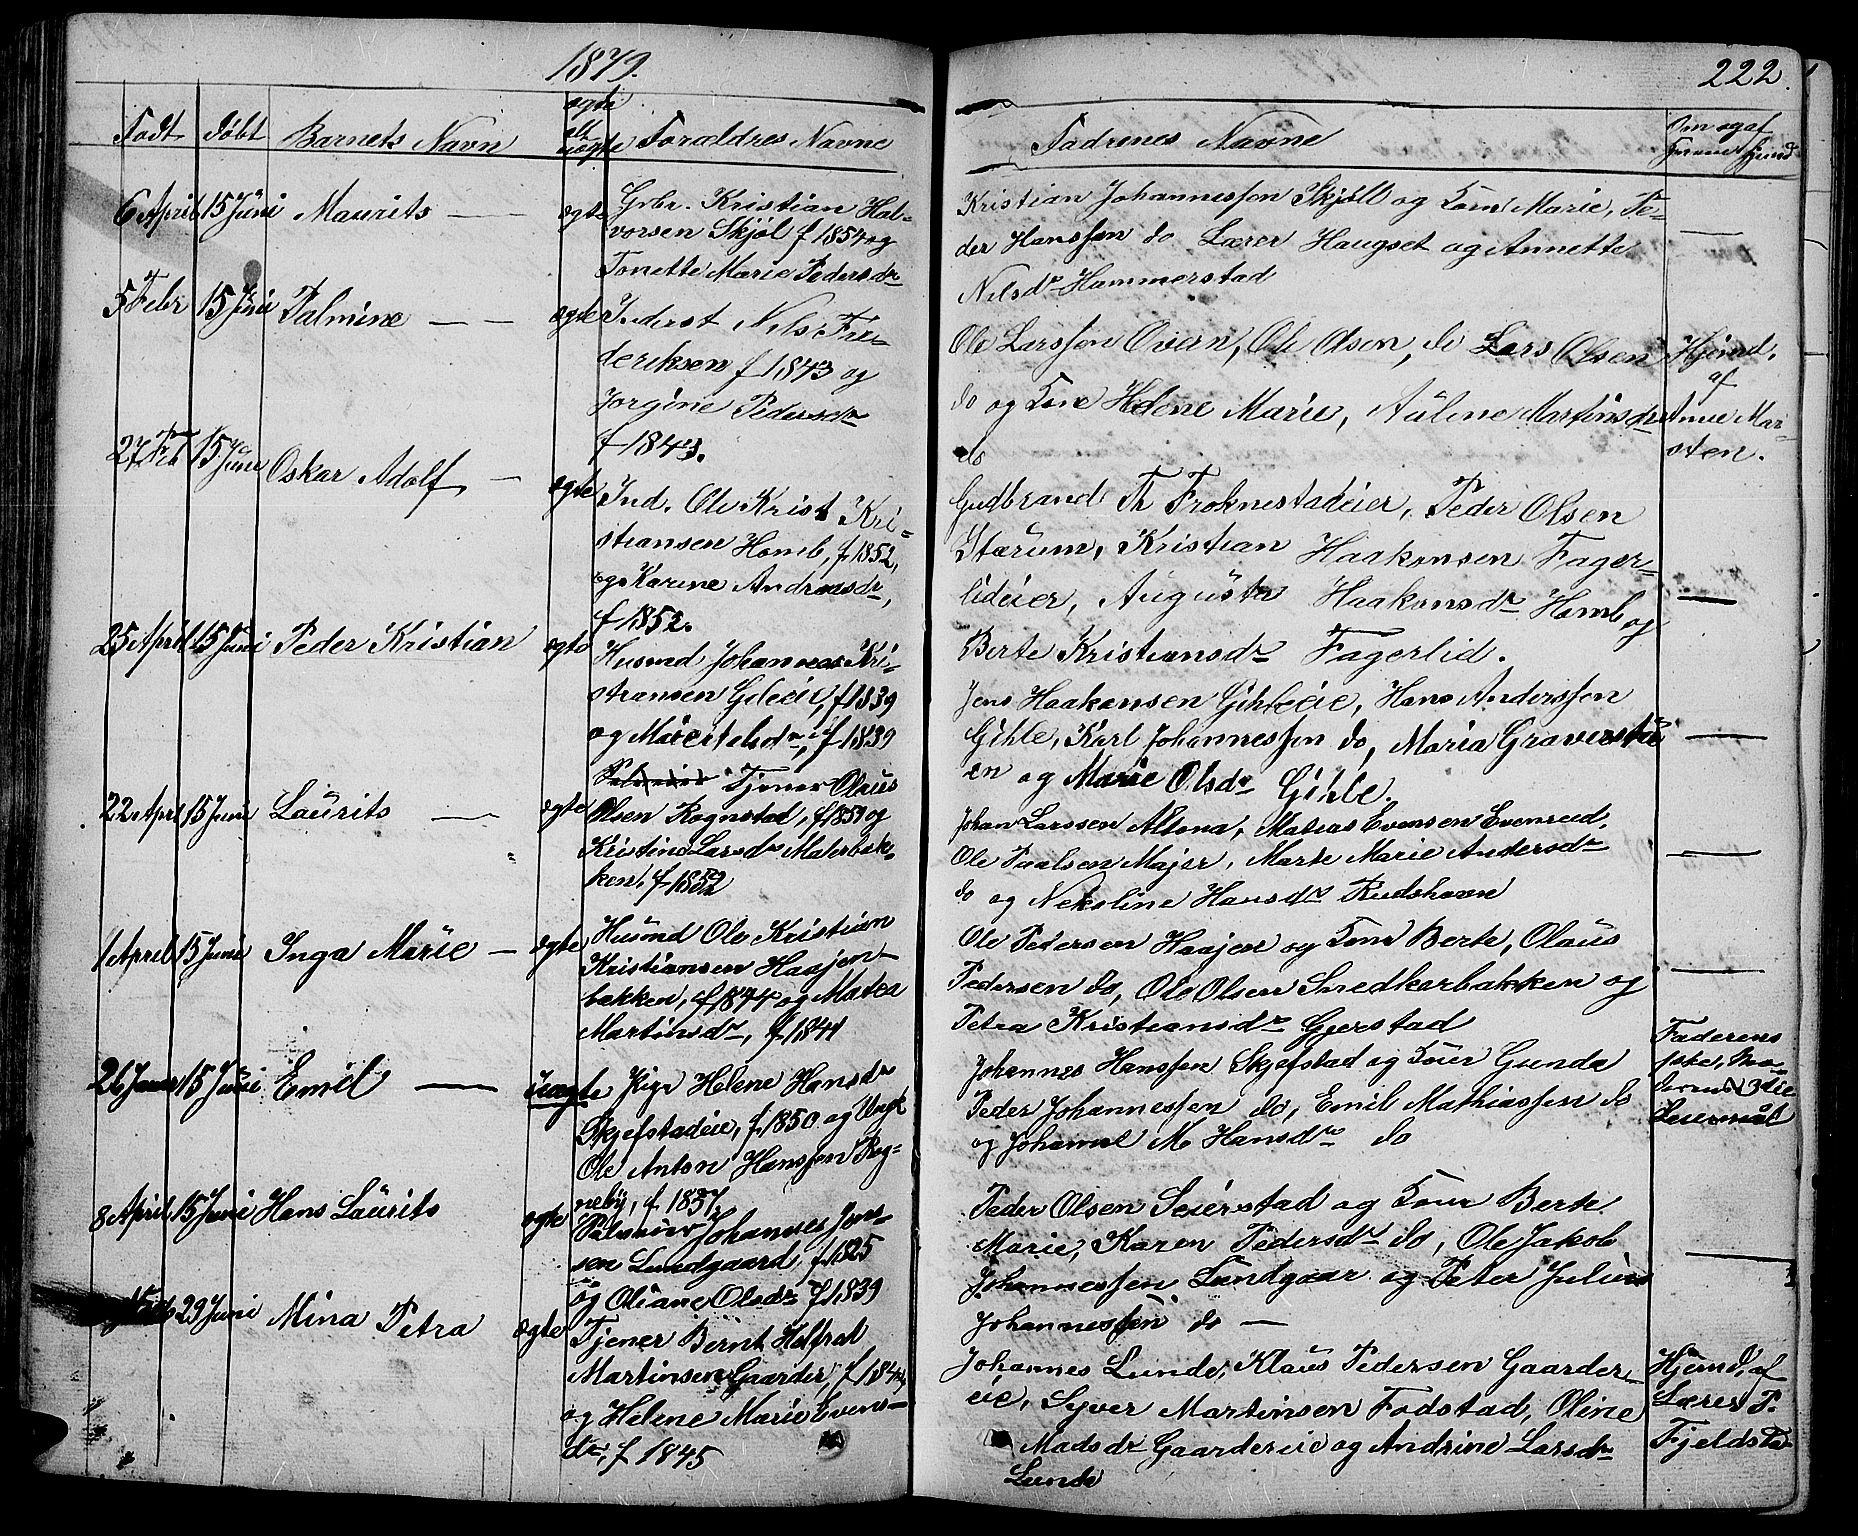 1879.
222.
Født døbt Barnets Navn ægte el. uægte Forældres Navne
Fadrenes Navne
Om og af hjemd
6 April 15 Juni Maurits — ægte Grbr. Kristian Hal-
vorsen Skjøl f 1854 og
Tonette Marie Pedersdr
Kristian Johannessen Skjøll og Kone Marie, Pe-
der Hanssen do Lærer Haugset og Annette
Nilsdr Hammerstad
5 Febr 15 Juni Palmine — — ægte Inderst Nils Fre-
deriksen f 1843 og
Jorgine Pedersdr
f 1843.
Ole Larssen Ovren, Ole Olsen, do Lars Olsen
do og Kone Helene Marie, Auline Martinsdr
do
Hjemd.
af
Anne Mar-
sten.
27 Feb 15 Juni Oskar Adolf — ægte Ind. Ole Krist Kri-
stiansen Homb, f 1852,
og Karine Andreasdr,
f 1852.
Gudbrand Th Troknestadeier, Peder Olsen
Starum, Kristian Haakensen Fager-
lideier, Augusta Haakensdr Homb og
Berte Kristiansdr Fagerlid.
25 April 15 Juni Peder Kristian ægte Husmd Johannes Kri-
stiansen Gileeie, f 1839
og Marie Nilsdr, f 1839
Jens Haakensen Gihleeie, Hans Anderssen
Gihle, Karl Johannessen do, Maria Graverstu
en og Marie Olsdr Gihle.
22 April 15 Juni Laurits — ægte Tjener Olaus
Olsen Rognstad, f 1851 og
Kristine Larsdr Malerbak-
ken, f 1852
Johan Larssen Altona, Matias Evensen Evenrud,
Ole Paalsen Majer, Marte Marie Andersdr
do og Nekoline Hansdr Rudshavn
1 April 15 Juni Inga Marie — ægte Husmd Ole Kristian
Kristiansen Haajen-
bakken, f 1874 og Matea
Martinsdr, f 1841
Ole Pedersen Haajen og Kone Berte, Olaus
Pedersen do, Ole Olsen Snedkerbakken og
Petra Kristiansdr Gjerstad
26 Janr 15 Juni Emil — uægte Pige Helene Hansdr
Skjefstadeie, f 1850 og Ungk
Ole Anton Hanssen Rog-
neby, f. 1837
Johannes Hanssen Skjefstad og Kone Gunda
Peder Johannessen do, Emil Mathiassen do
og Johanne M Hansdr do
Faderens
3die
Leiermaal
8 April 15 Juni Hans Laurits ægte Johannes Jens-
sen Lundgaard, f 1825
og Oliane Olsdr f 1839
Peder Olsen Seierstad og Kone Berte
Marie, Karen Pedersdr do, Ole Jakob
Johannessen Lundgaar og Peter Julius
Johannessen do —
29 Juni Mina Petra ægte Tjener Bernt Helfred
Martinsen Gaarder, f 184
og Helene Marie Evens-
dr, f 1845
Johannes Lunde, Klaus Pedersen Gaarder-
eie, Syver Martinsen Fodstad, Oline
Madsdr Gaardereie og Andrine Larsdr
Lunde
Hjemd. af
Lærer P.
Fjeldsta